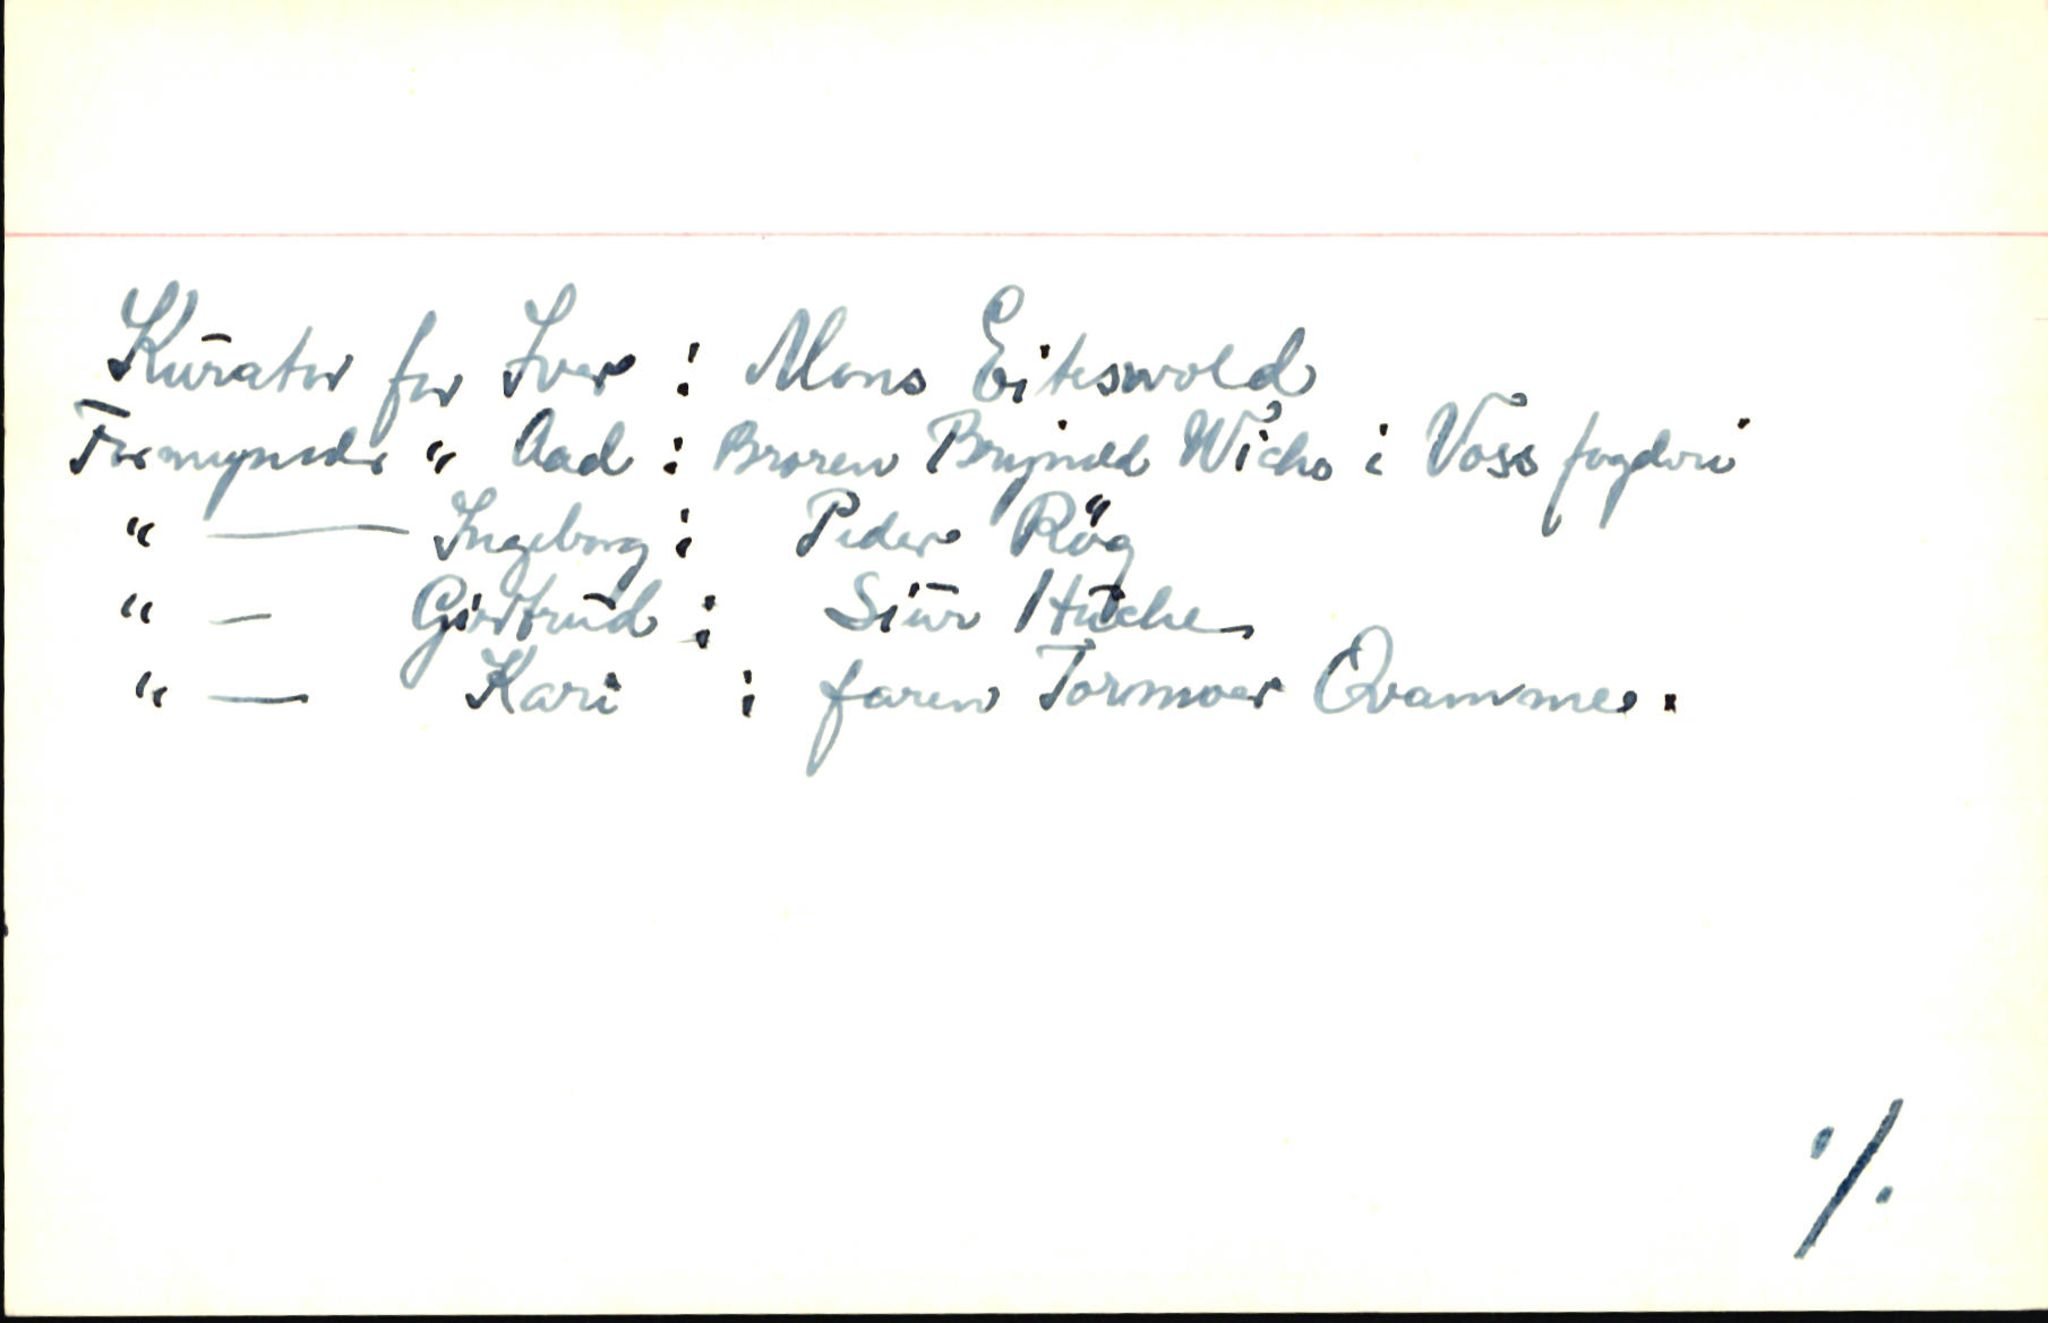 Kurator for Iver : Mons Eiteswold
Formynder " Aad : Broren Brynild Wichs i Voss fogderi
" — Ingeborg : Peder Rög
" — Giertrud : Siur Huche
" — Kari : faren Tormoer Qvamme.
./.